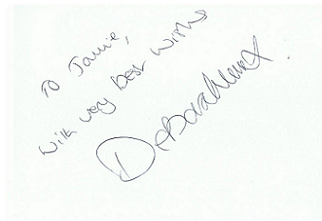 To Jamie,
With very best wishes
Deborah